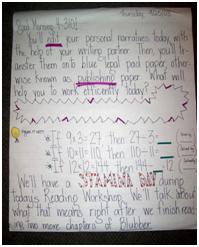 Thursday
Good Morning 4-310!
You'll edit your personal narratives today with
the help of your writing partner. Then, you'll tr-
ansfer them onto blue legal pad paper, other-
wise known as publishing paper. What will
help you to work efficiently today?
If 9x3=27 then 27÷3=
If 10x11=110 then 110÷11=
If 12x12=144 then 144÷ =12
We'll have a STAMINA DAY during
today's Reading Workshop. We'll talk about
what that means right after we finish read-
ing two more chapters of Blubber.